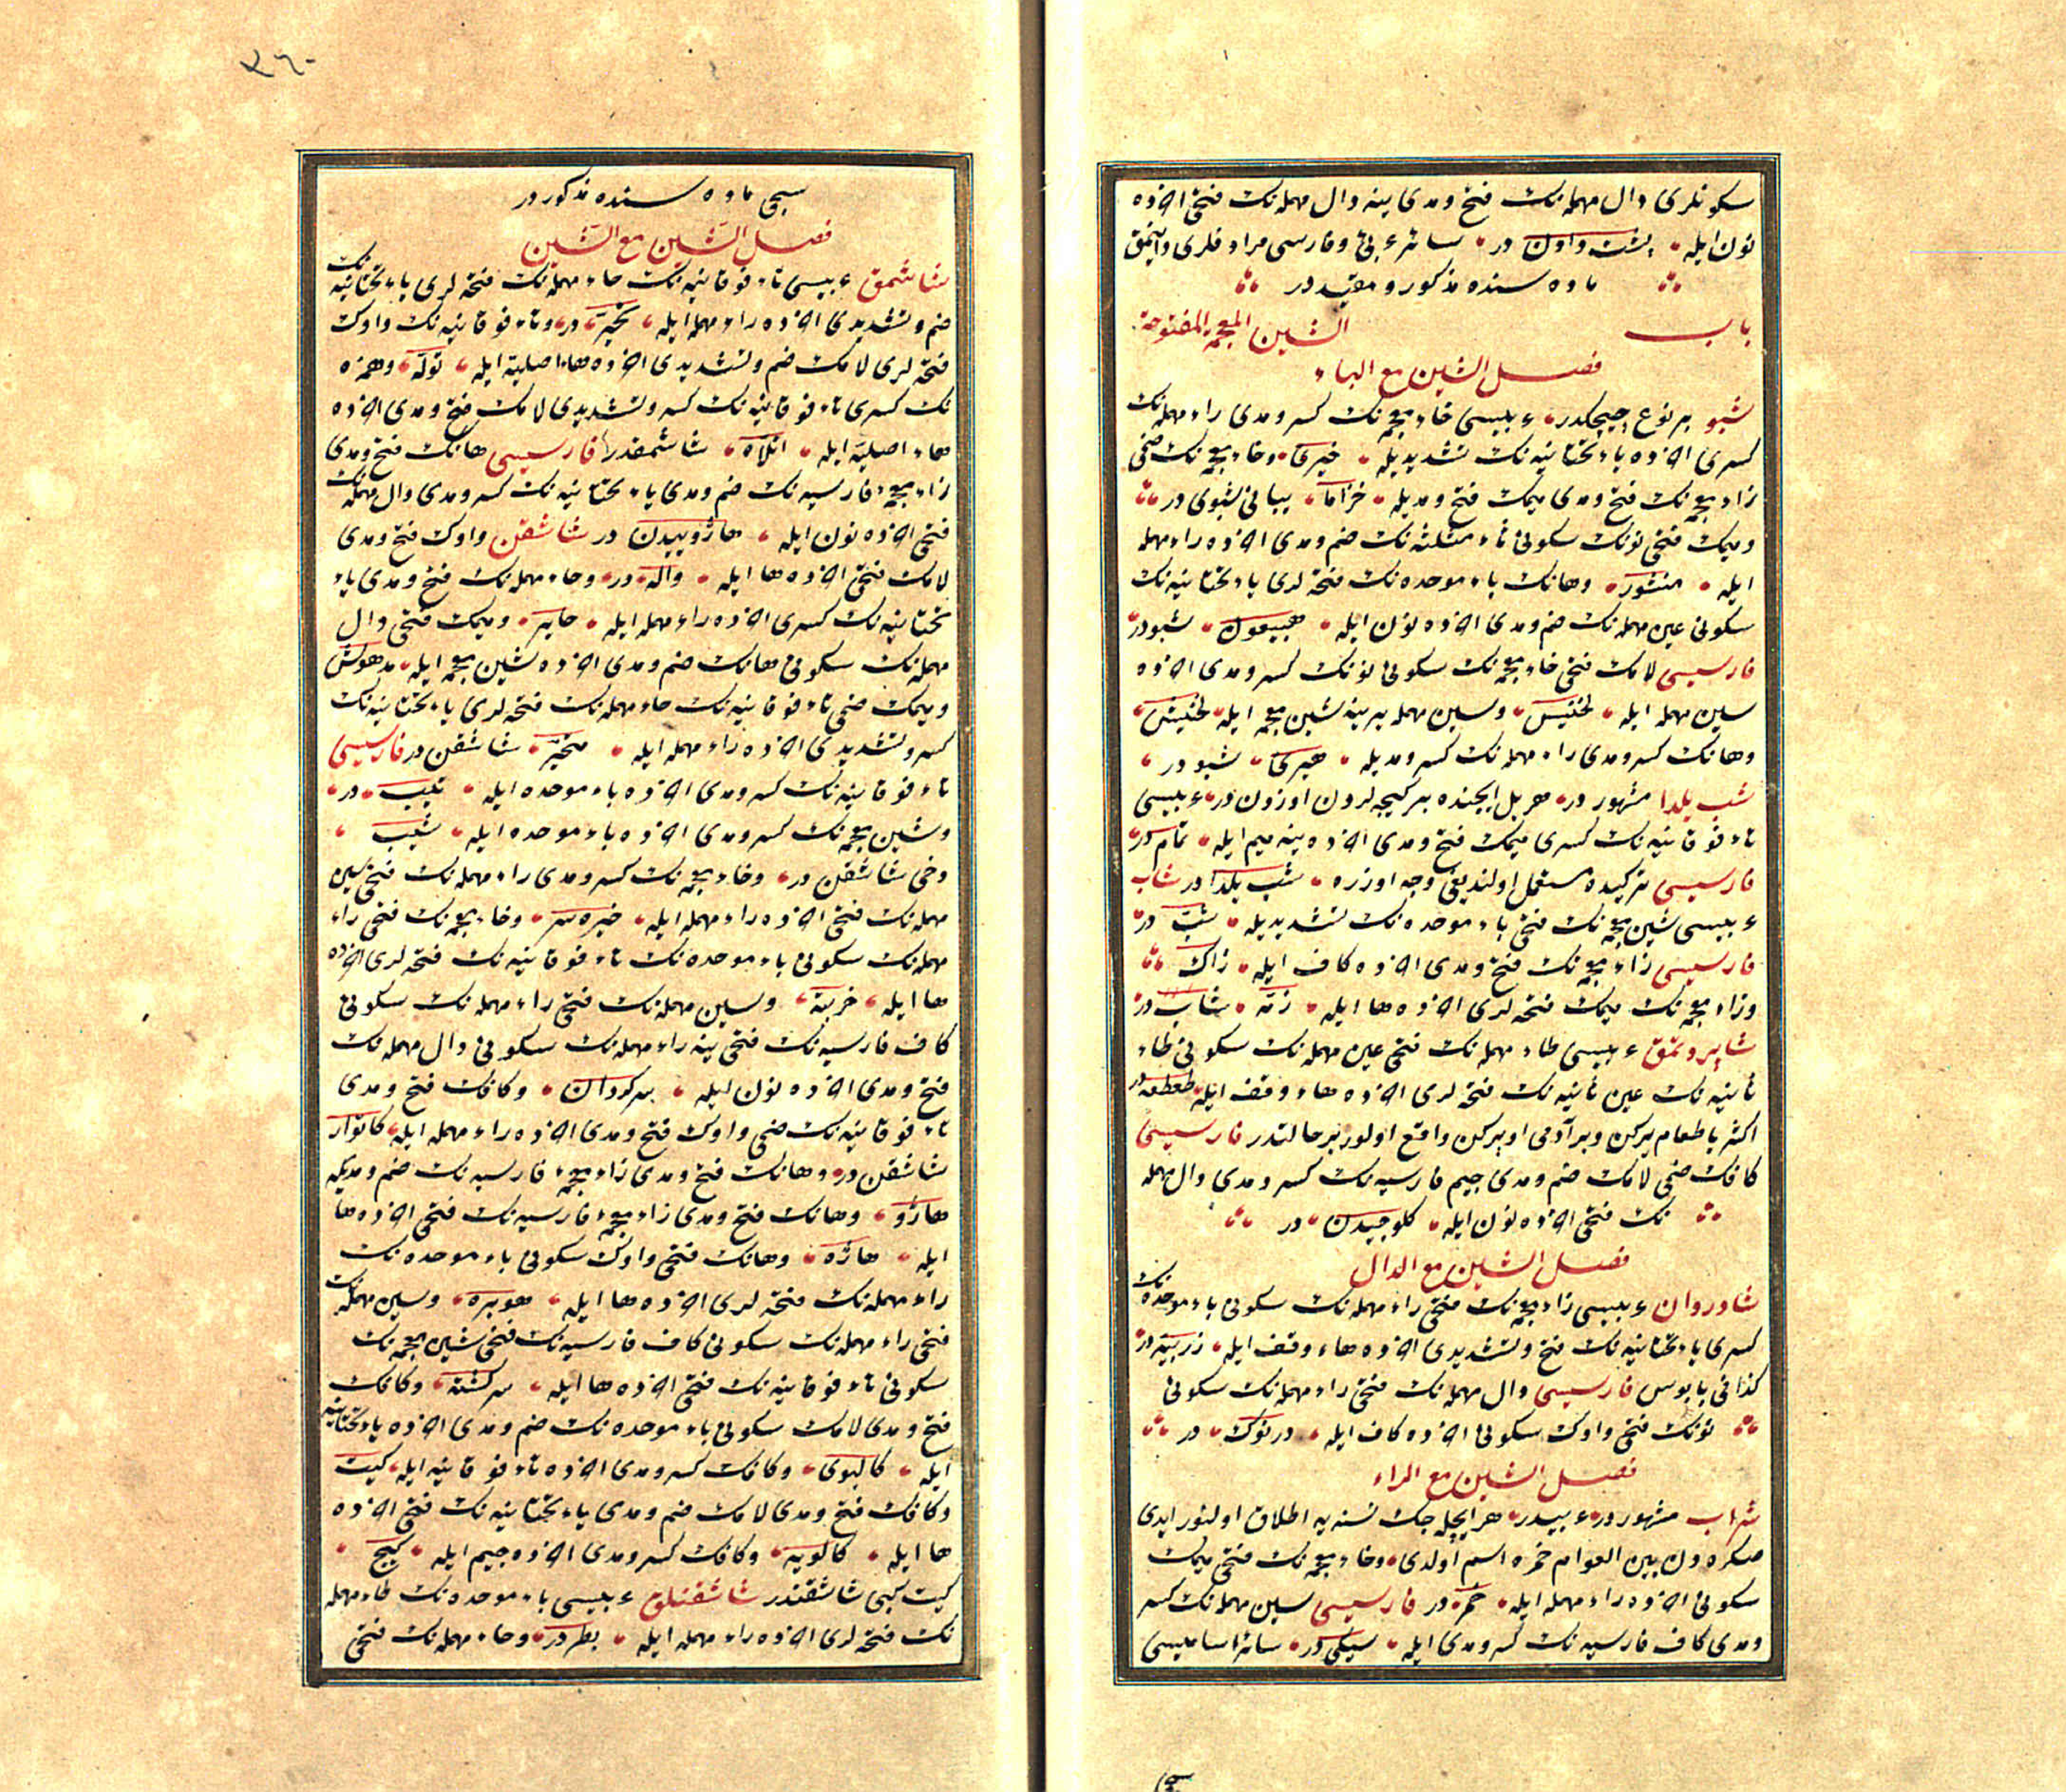 سكونلرى دال مهمله‌نك فتح ومدى ينه دال مهمله‌نك فتحى آخرده
نون ايله پشت دادن در سائر عربى وفارسى مرادفلرى دايتمق
ماده سنده مذكور ومقيد در
باب الشين المعجمه المفتوحة
فصل الشين مع الباء
شبو بر نوع چيچكدر عربيسى خاء معجمه‌نك كسر ومدى راء مهمله‌نك
كسرى آخرده ياء تحتانيه‌نك تشديديله خيرى وخاء معجمه‌نك ضمى
زاء معجمه‌نك فتح ومدى ميمك فتح ومديله خزاما يبانى شبوى در
وميمك فتحى نونك سكونى ثاء مثلثه‌نك ضم ومدى آخرده راء مهمله
ايله منثور وهانك باء موحده‌نك فتحه لرى ياء تحتانيه‌نك
سكونى عين مهمله‌نك ضم ومدى آخرده نون ايله هبيعون شبودر
فارسيسى لامك فتحى خاء معجمه‌نك سكونى نونك كسر ومدى آخرده
سين مهمله ايله لخنيس وسين مهمله يرينه شين معجمه ايله لخنيش
وهانك كسر ومدى راء مهمله‌نك كسر ومديله هيرى شبو در
شب يلدا مشهور در هر يل ايچنده بر كيجه لردن اوزون در عربيسى
تاء فوقانيه‌نك كسرى ميمك فتح ومدى آخرده ينه ميم ايله تمام در
فارسيسى تركيده مستعمل اولنديغى وجه اوزره شب يلدا در شاب
عربيسى شين معجمه‌نك فتحى باء موحده‌نك تشديديله شب در
فارسيسى زاء معجمه‌نك فتح ومدى آخرده كاف ايله زاك
وزاء معجمه‌نك ميمك فتحه لرى آخرده ها ايله زمه شاب در
عربيسى طاء مهمله‌نك فتحى عين مهمله‌نك سكونى طاء
ثانيه‌نك عين ثانيه‌نك فتحه لرى آخرده هاء وقف ايله طعطعه در
اكثريا طعام يركن وبر آدمى اوپركن واقع اولور بر حالتدر فارسيسى
كافك ضمى لامك ضم ومدى جيم فارسيه‌نك كسر ومدى دال مهمله
نك فتحى آخرده نون ايله كلوچيدن در
فصل الشين مع الدال
شادروان عربيسى زاء معجمه‌نك فتحى راء مهمله‌نك سكونى باء موحده‌نك
كسرى ياء تحتانيه‌نك فتح وتشديدى آخرده هاء وقف ايله زربيه در
كذا فى بابوس فارسيسى دال مهمله‌نك فتحى راء مهمله‌نك سكونى
نونك فتحى واوك سكونى آخرده كاف ايله درنوك در
فصل الشين مع الراء
شراب مشهور در عربيدر هر ايچيله جك نسنه يه اطلاق اولنور ايدى
صكره دن بين العوام خمره اسم اولدى وخاء معجمه‌نك فتحى ميمك
سكونى آخرده راء مهمله ايله خمر در فارسيسى سين مهمله‌نك كسر
ومدى كاف فارسيه‌نك كسر ومدى ايله سيكى در سائر اساميسى
سجى ماده سنده مذكور در
فصل الشين مع الشين
شاشمق عربيسى تاء فوقانيه‌نك حاء مهمله‌نك فتحه لرى ياء تحتانيه‌نك
ضم وتشديدى آخرده راء مهمله ايله تحير در وتاء فوقانيه‌نك واوك
فتحه لرى لامك ضم وتشديدى آخرده هاء اصليه ايله توله وهمزه
نك كسرى تاء فوقانيه‌نك كسر وتشديدى لامك فتح ومدى آخرده
هاء اصليه ايله اتلاه شاشمقدر فارسيسى هانك فتح ومدى
زاء معجمه فارسيه‌نك ضم ومدى ياء تحتانيه‌نك كسر ومدى دال مهمله‌نك
فتحى آخرده نون ايله هاژوييدن در شاشقن واوك فتح ومدى
لامك فتحى آخرده ها ايله واله در وحاء مهمله‌نك فتح ومدى ياء
تحتانيه‌نك كسرى آخرده راء مهمله ايله حاير وميمك فتحى دال
مهمله‌نك سكونى هانك ضم ومدى آخرده شين معجمه ايله مدهوش
وميمك ضمى تاء فوقانيه‌نك حاء مهمله‌نك فتحه لرى ياء تحتانيه‌نك
كسر وتشديدى آخرده راء مهمله ايله متحير شاشقن در فارسيسى
تاء فوقانيه‌نك كسر ومدى آخرده باء موحده ايله تيب در
وشين معجمه‌نك كسر ومدى آخرده باء موحده ايله شيب
دخى شاشقن در وخاء معجمه‌نك كسر ومدى راء مهمله‌نك فتحى سين
مهمله‌نك فتحى آخرده راء مهمله ايله خيره سر وخاء معجمه‌نك فتحى راء
مهمله‌نك سكونى باء موحده‌نك تاء فوقانيه‌نك فتحه لرى آخرده
ها ايله خربته وسين مهمله‌نك فتحى راء مهمله‌نك سكونى
كاف فارسيه‌نك فتحى ينه راء مهمله‌نك سكونى دال مهمله‌نك
فتح ومدى آخرده نون ايله سركردان وكافك فتح ومدى
تاء فوقانيه‌نك ضمى واوك فتح ومدى آخرده راء مهمله ايله كاتوار
شاشقن در وهانك فتح ومدى زاء معجمه فارسيه‌نك ضم ومديله
هاژو وهانك فتح ومدى زاء معجمه فارسيه‌نك فتحى آخرده ها
ايله هاژه وهانك فتحى واوك سكونى باء موحده‌نك
راء مهمله‌نك فتحه لرى آخرده ها ايله هوبره وسين مهمله‌نك
فتحى راء مهمله‌نك سكونى كاف فارسيه‌نك فتحى شين معجمه‌نك
سكونى تاء فوقانيه‌نك فتحى آخرده ها ايله سركشته وكافك
فتح ومدى لامك سكونى باء موحده‌نك ضم ومدى آخرده ياء تحتانيه
ايله كالبوى وكافك كسر ومدى آخرده تاء فوقانيه ايله كيت
وكافك فتح ومدى لامك ضم ومدى ياء تحتانيه‌نك فتحى آخرده
ها ايله كالويه وكافك كسر ومدى آخرده جيم ايله كيج
كيت كبى شاشقندر شاشقنلق عربيسى باء موحده‌نك طاء مهمله
نك فتحه لرى آخرده راء مهمله ايله بطر در وحاء مهمله‌نك فتحى